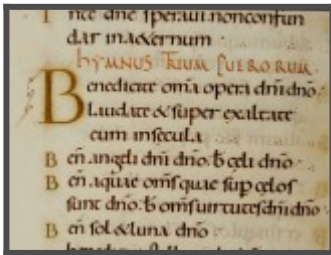 nte dñe speraui. non confun
dar in aeternum
hYMNUS TRIUM PUERORUM.
Benedicite oma opera dni dño
Laudate & super exaltate
eum in secula
Ben angeli dni dño. b celi dño
Ben aquae oms quae sup celos
sunt dño. b oms uirtutes dni dño
Ben sol & luna dño